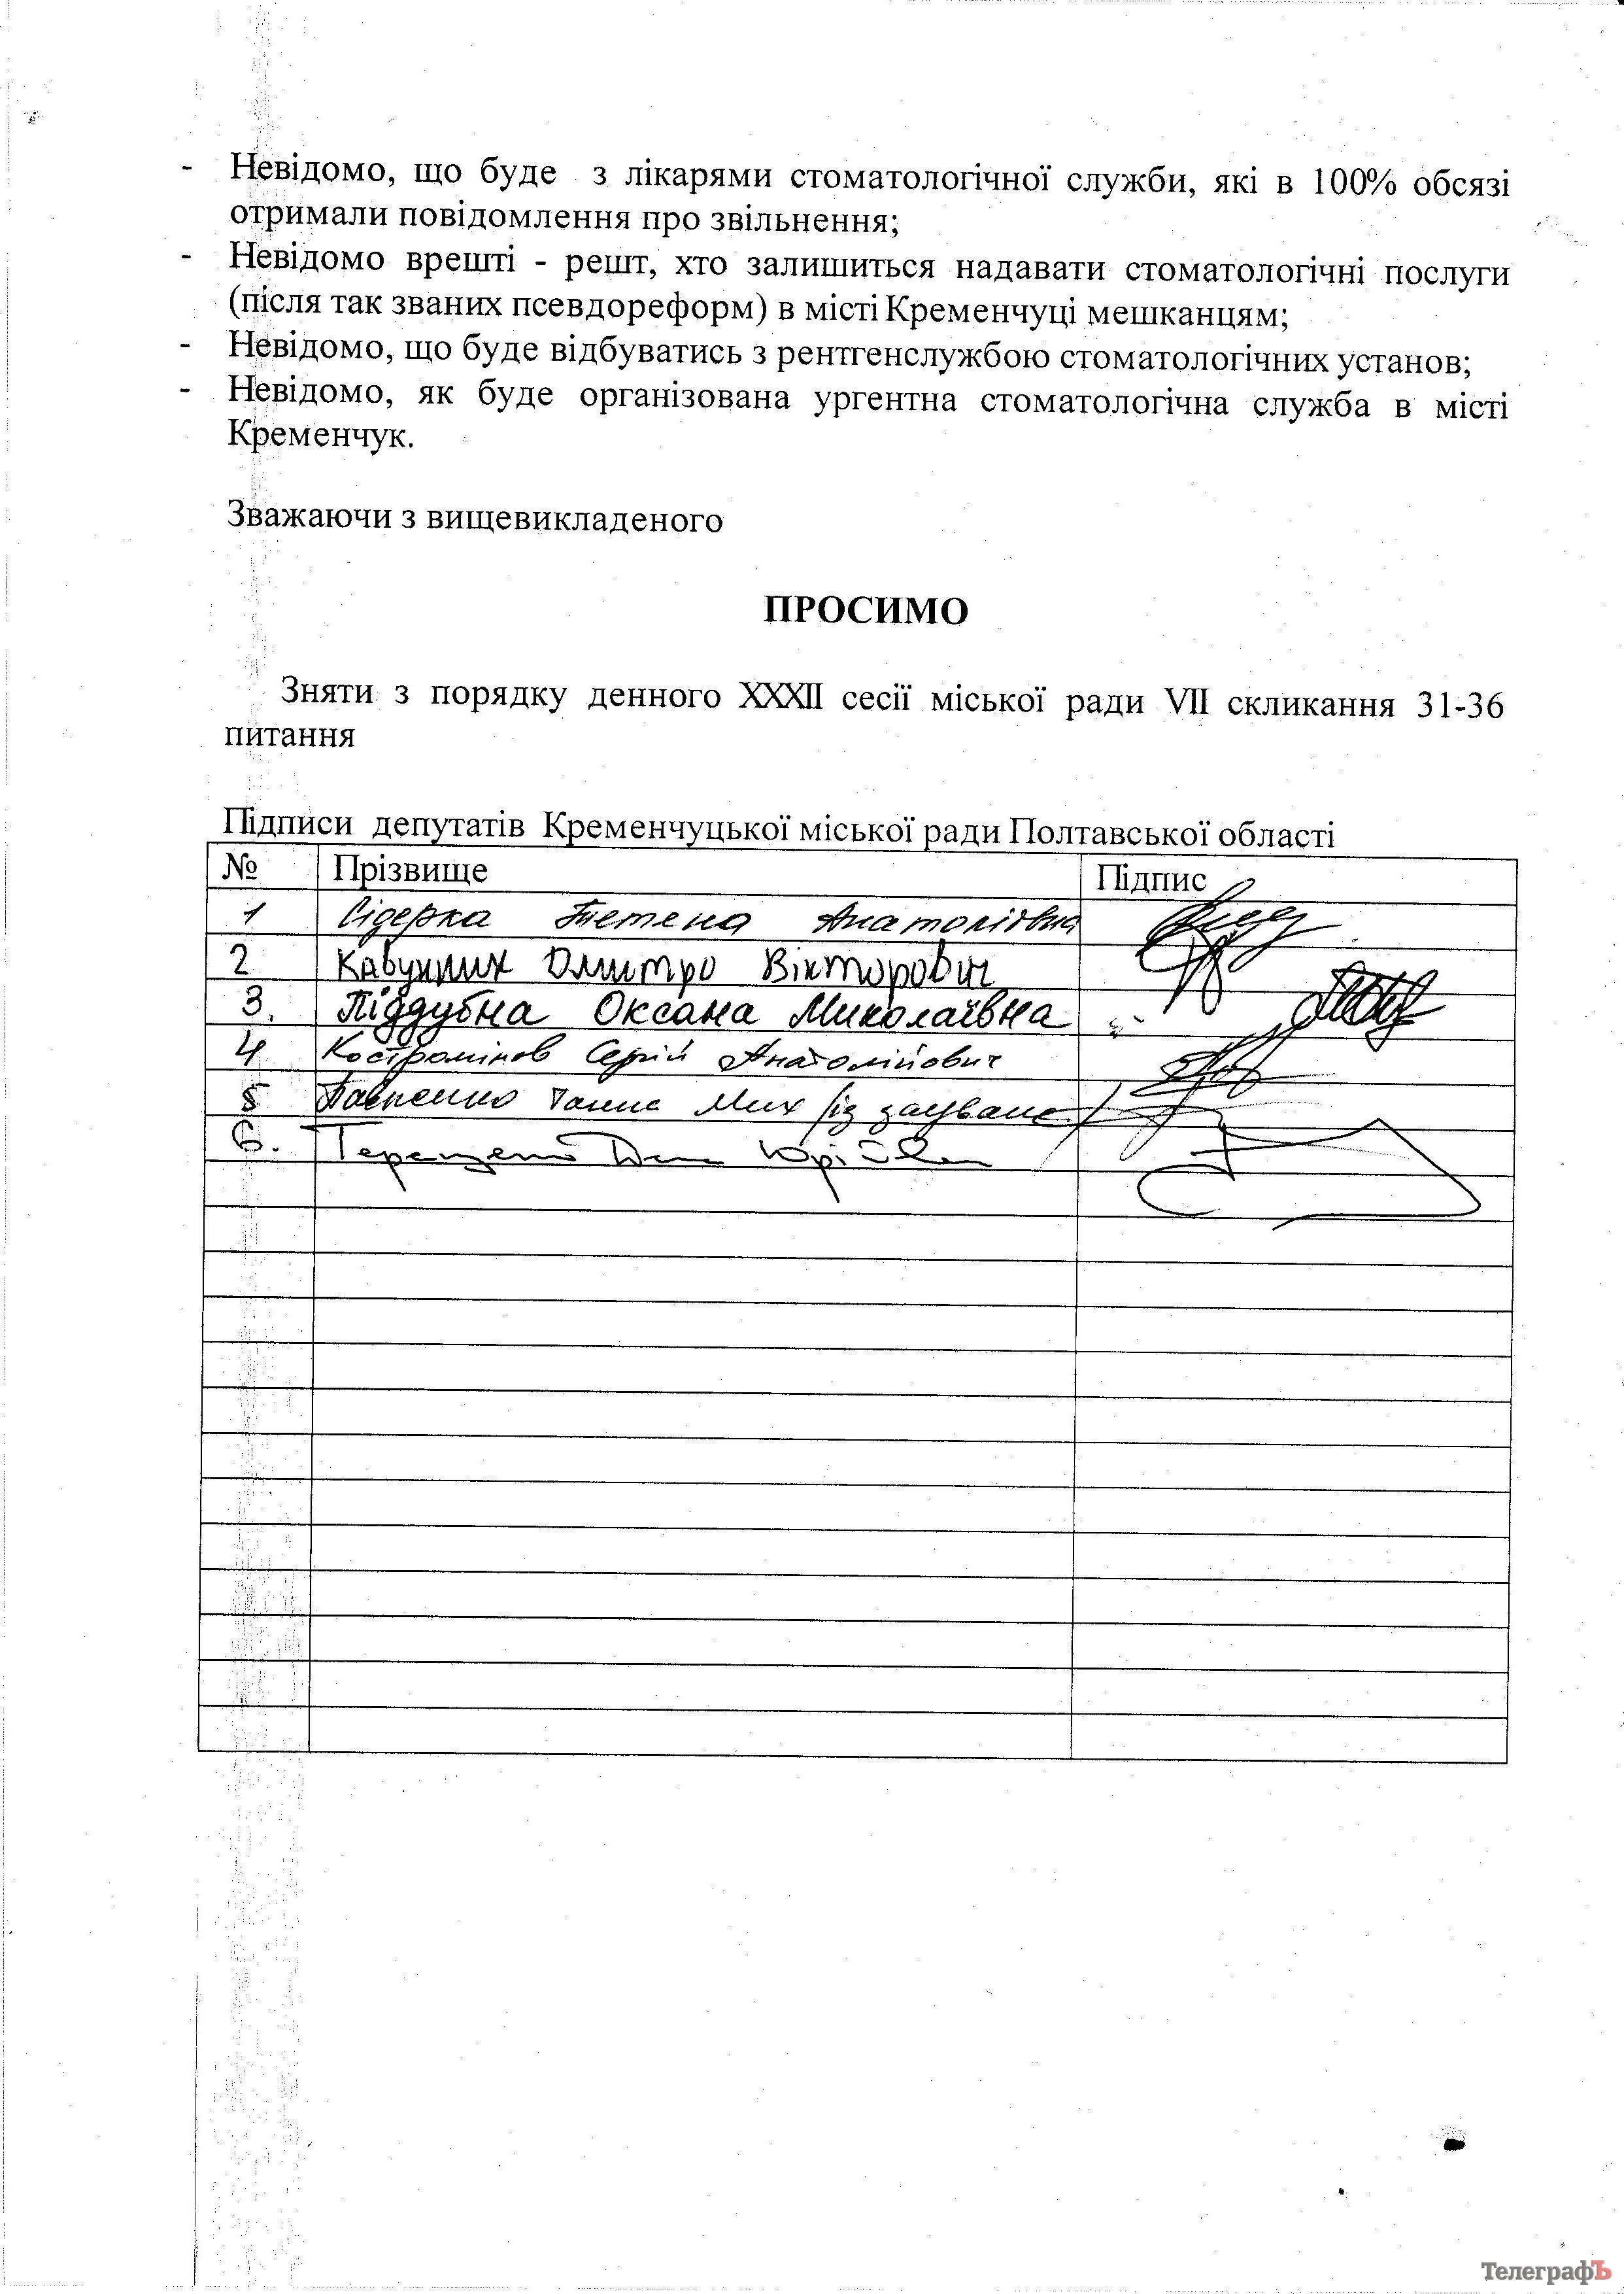 - Невідомо, що буде з лікарями стоматологічної служби, які в 100% обсязі
отримали повідомлення про звільнення;
- Невідомо врешті - решт, хто залишиться надавати стоматологічні послуги
(після так званих псевдореформ) в місті Кременчуці мешканцям;
- Невідомо, що буде відбуватись з рентгенслужбою стоматологічних установ;
- Невідомо, як буде організована ургентна стоматологічна служба в місті
Кременчук.
Зважаючи з вищевикладеного
ПРОСИМО
Зняти з порядку денного XXXII сесії міської ради VII скликання 31-36
питання
Підписи депутатів Кременчуцької міської ради Полтавської області
№ Прізвище Підпис
1 Сідерка Анатоліївна
2 Дмитро Вікторович
3. Піддубна Оксана Миколаївна
4 Костромінов Сергій Анатолійович
5 Мих
6.
ТелеграфЪ